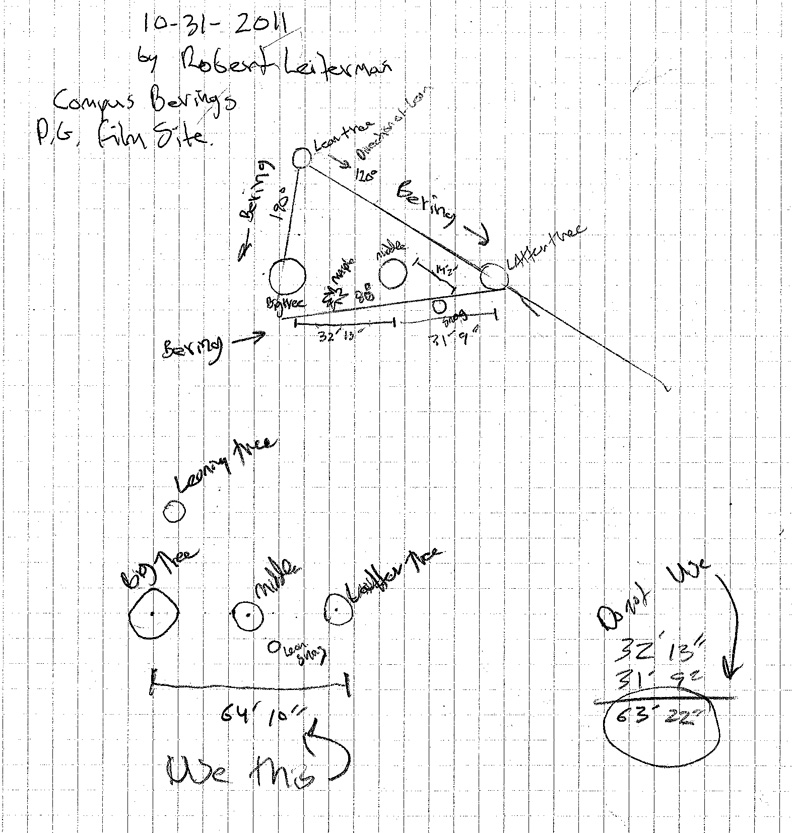 10-31-2011
by Robert Leiterman
Compus Berings
P.G. Film Site.
Lean tree
Direction of Lean
120°
Bering
190°
Bering
LAtter tree
Middle
Big tree
80°
14'2"
Snag
32' 13"
31' 9"
Bering
Leaning tree
Big Tree
Middle
Ladder Tree
Lean
Snag
64' 10"
Use this
Do not Use
32' 13"
31' 9"
63' 22"